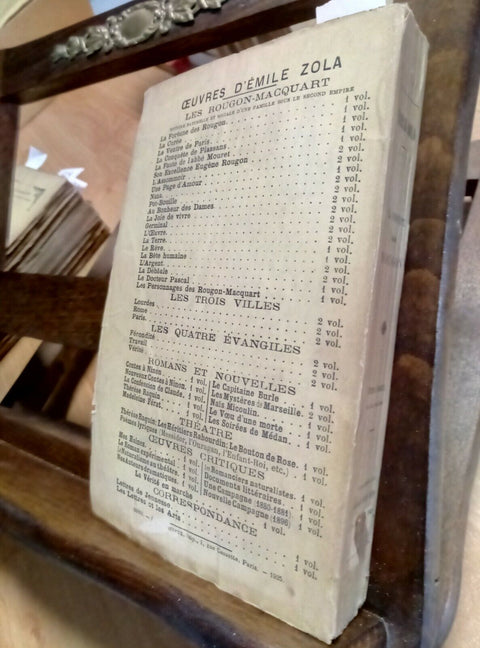 ŒUVRES D'ÉMILE ZOLA
LES ROUGON-MACQUART
HISTOIRE NATURELLE ET SOCIALE D'UNE FAMILLE SOUS LE SECOND EMPIRE
La Fortune des Rougon. 1 vol.
La Curée 1 vol.
Le Ventre de Paris. 1 vol.
La Conquête de Plassans. 1 vol.
La Faute de l'abbé Mouret
Son Excellence Eugène Rougon
L'Assommoir
Une Page d'Amour
Nana.
Pot-Bouille
Au Bonheur des Dames
La Joie de vivre
Germinal
L'Œuvre.
La Terre.
Le Rêve.
La Bête humaine
L'Argent.
La Débâcle
Le Docteur Pascal
Les Personnages des Rougon-Macquart 1 vol.
LES TROIS VILLES
Lourdes 2 vol.
Rome 2 vol.
Paris. 2 vol.
LES QUATRE ÉVANGILES
Fécondité 2 vol.
Travail 2 vol.
Vérité 2 vol.
ROMANS ET NOUVELLES
Contes à Ninon. 1 vol.
Nouveaux Contes à Ninon. 1 vol.
La Confession de Claude. 1 vol.
Thérèse Raquin. 1 vol.
Madeleine Férat. 1 vol.
Le Capitaine Burle 1 vol.
Les Mystères de Marseille. 2 vol.
Naïs Micoulin. 1 vol.
Le Vœu d'une morte 1 vol.
Les Soirées de Médan. 1 vol.
THÉATRE
Thérèse Raquin. Les Héritiers Rabourdin. Le Bouton de Rose. 1 vol.
Poèmes lyriques (Messidor, l'Ouragan, l'Enfant-Roi, etc.) 1 vol.
ŒUVRES CRITIQUES
Mes Haines. 1 vol.
Le Roman expérimental. 1 vol.
Le Naturalisme au théâtre. 1 vol.
Nos Auteurs dramatiques. 1 vol.
Les Romanciers naturalistes. 1 vol.
Documents littéraires 1 vol.
Une Campagne (1880-1881) 1 vol.
Nouvelle Campagne (1896) 1 vol.
La Vérité en marche 1 vol.
CORRESPONDANCE
Lettres de Jeunesse. 1 vol.
Les Lettres et les Arts 1 vol.
Paris. — 1925.